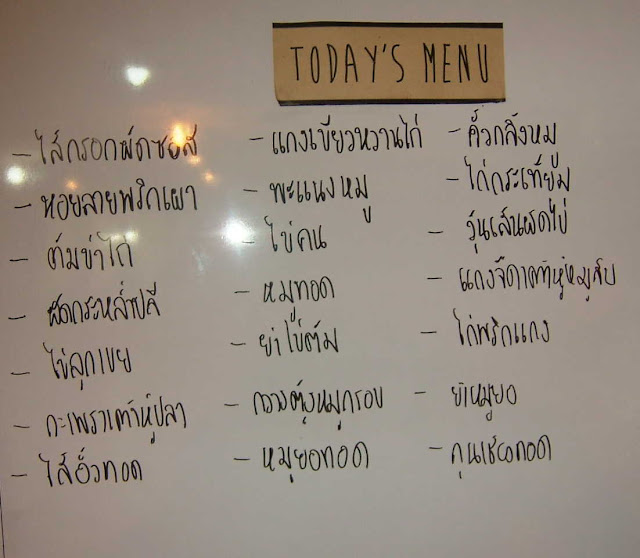 TODAY'S MENU
- ไส้กรอกผัดซอส
- หอยลายพริกเผา
- ต้มข่าไก่
- ผัดกระหล่ำปลี
- ไข่ลูกเขย
- กะเพราเต้าหู้ปลา
- ไส้อั่วทอด
- แกงเขียวหวานไก่
- พะแนงหมู
- ไข่คน
- หมูทอด
- ยำไข่ต้ม
- กวางตุ้งหมูกรอบ
- หมูยอทอด
- คั่วกลิ้งหมู
- ไก่กระเทียม
- วุ้นเส้นผัดไข่
- แกงจืดเต้าหู้หมูสับ
- ไก่พริกแกง
- ยำหมูยอ
- กุนเชียงทอด